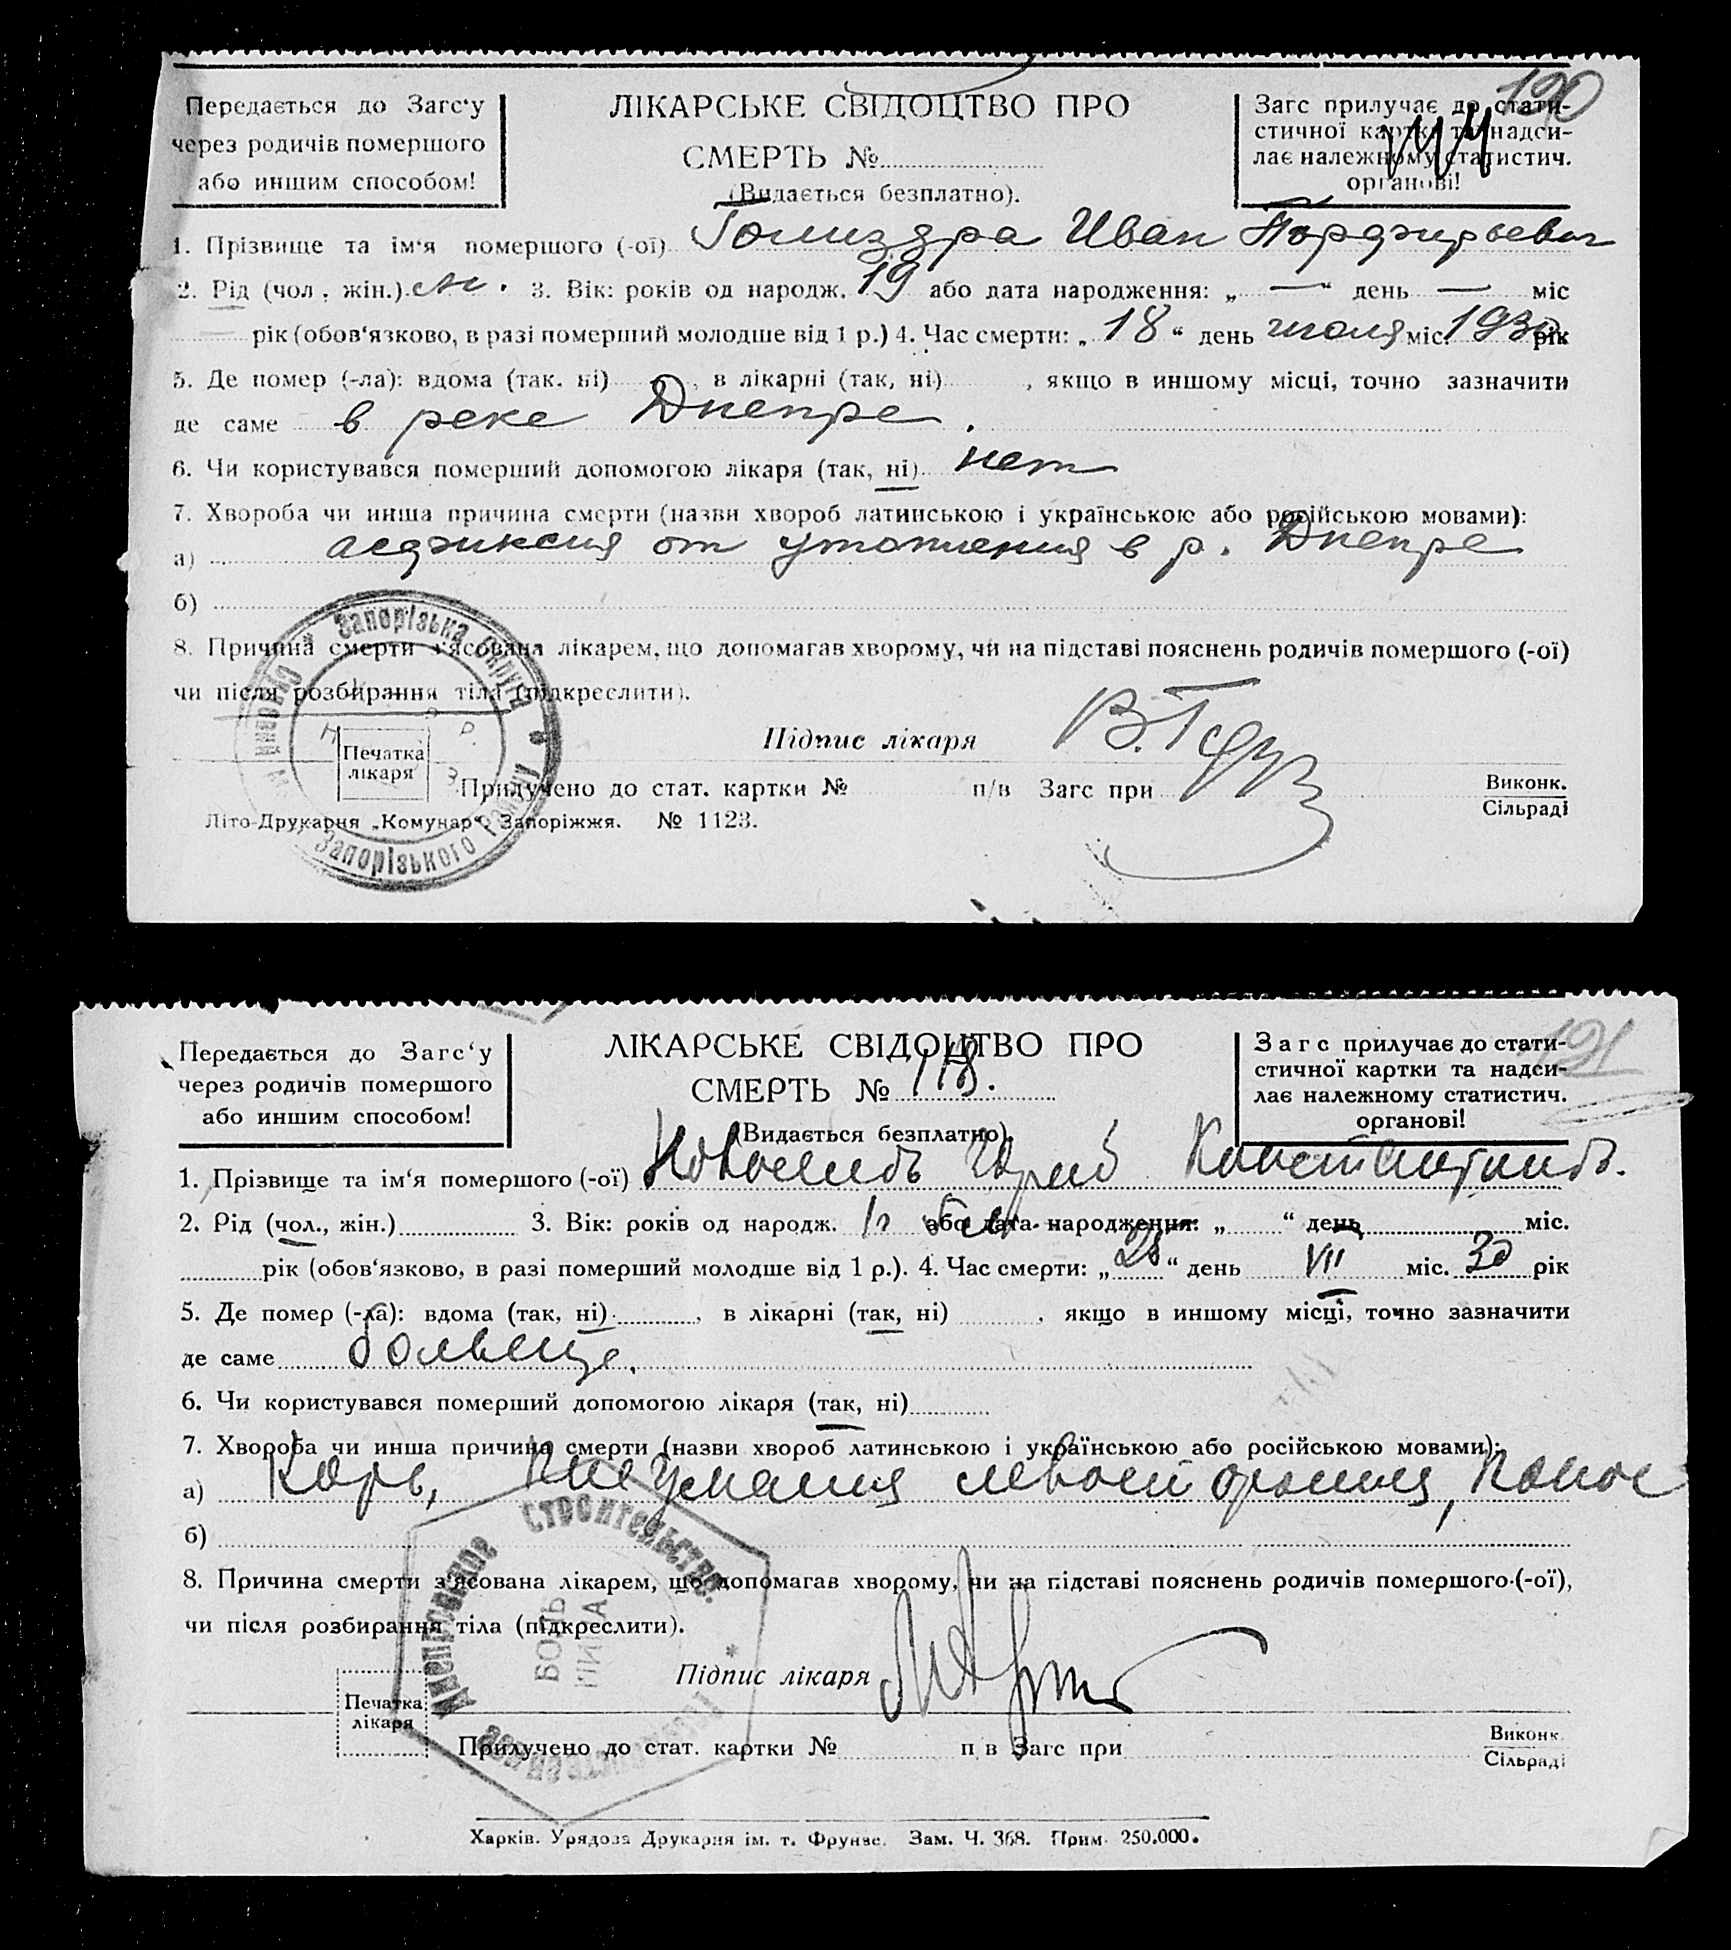 190
Передається до Загс'у
через родичів помершого
або иншим способом!
ЛІКАРСЬКЕ СВІДОЦТВО ПРО
СМЕРТЬ №
(Видається безплатно).
Загс прилучає до стати-
стичної картки та надси-
лає належному статистич.
органові!
1. Прізвище та ім'я помершого (-ої) Гомиздра Иван Порфирьевич
2. Рід (чол., жін.) м. 3. Вік: років од народж. 19 або дата народження: „ — “ день — міс
— рік (обов'язково, в разі померший молодше від 1 р.) 4. Час смерти: „18“ день июля міс. 1930 рік
5. Де помер (-ла): вдома (так, ні) , в лікарні (так, ні) , якщо в иншому місці, точно зазначити
де саме в реке Днепре.
6. Чи користувався померший допомогою лікаря (так, ні) нет
7. Хвороба чи инша причина смерти (назви хвороб латинською і українською або російською мовами):
а) асфиксия от утопления в р. Днепре
б)
8. Причина смерти з'ясована лікарем, що допомагав хворому, чи на підставі пояснень родичів помершого (-ої)
чи після розбирання тіла (підкреслити).
Запорізька округа
Запорізького району
Підпис лікаря
Печатка
лікаря
Прилучено до стат. картки № п/в Загс при Виконк.
Сільраді
Літо-Друкарня „Комунар“, Запоріжжя. № 1123.
191
Передається до Загс'у
через родичів помершого
або иншим способом!
ЛІКАРСЬКЕ СВІДОЦТВО ПРО
СМЕРТЬ № 118.
(Видається безплатно).
Загс прилучає до стати-
стичної картки та надси-
лає належному статистич.
органові!
1. Прізвище та ім'я помершого (-ої) Юрий
2. Рід (чол., жін.) 3. Вік: років од народж. 1 г або дата народження: „ “ день міс.
рік (обов'язково, в разі померший молодше від 1 р.). 4. Час смерти: „28“ день VII міс. 30 рік
5. Де помер (-ла): вдома (так, ні) , в лікарні (так, ні) , якщо в иншому місці, точно зазначити
де саме больнице.
6. Чи користувався померший допомогою лікаря (так, ні)
7. Хвороба чи инша причина смерти (назви хвороб латинською і українською або російською мовами):
а) Корь, Пневмания левосторонняя, понос
б)
8. Причина смерти з'ясована лікарем, що допомагав хворому, чи на підставі пояснень родичів помершого (-ої),
чи після розбирання тіла (підкреслити).
Днепровское Строительство.
БОЛЬ
НИЦА
Підпис лікаря
Печатка
лікаря
Прилучено до стат. картки № п в Загс при Виконк.
Сільраді
Харків. Урядова Друкарня ім. т. Фрунзе. Зам. Ч. 368. Прим. 250.000.